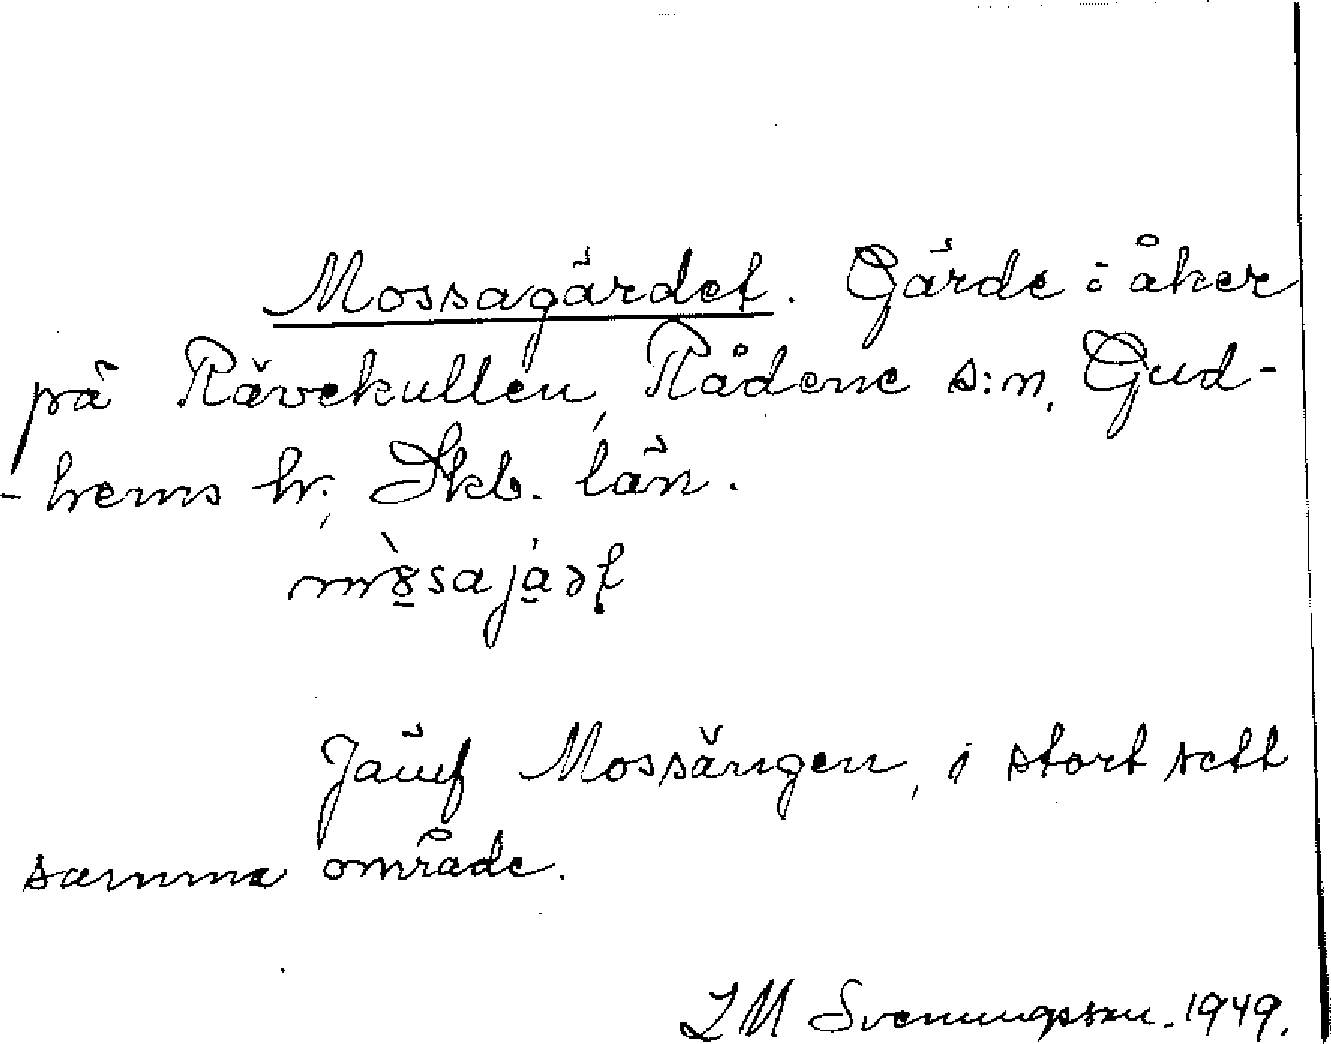 Mossagärdet. Gärde i åker
på Rävekullen, Rådene s:n, Gud-
-hems hr., Skb. län.
Jämf Mossängen, i stort sett
samma område.
L M Svenungsson. 1949.